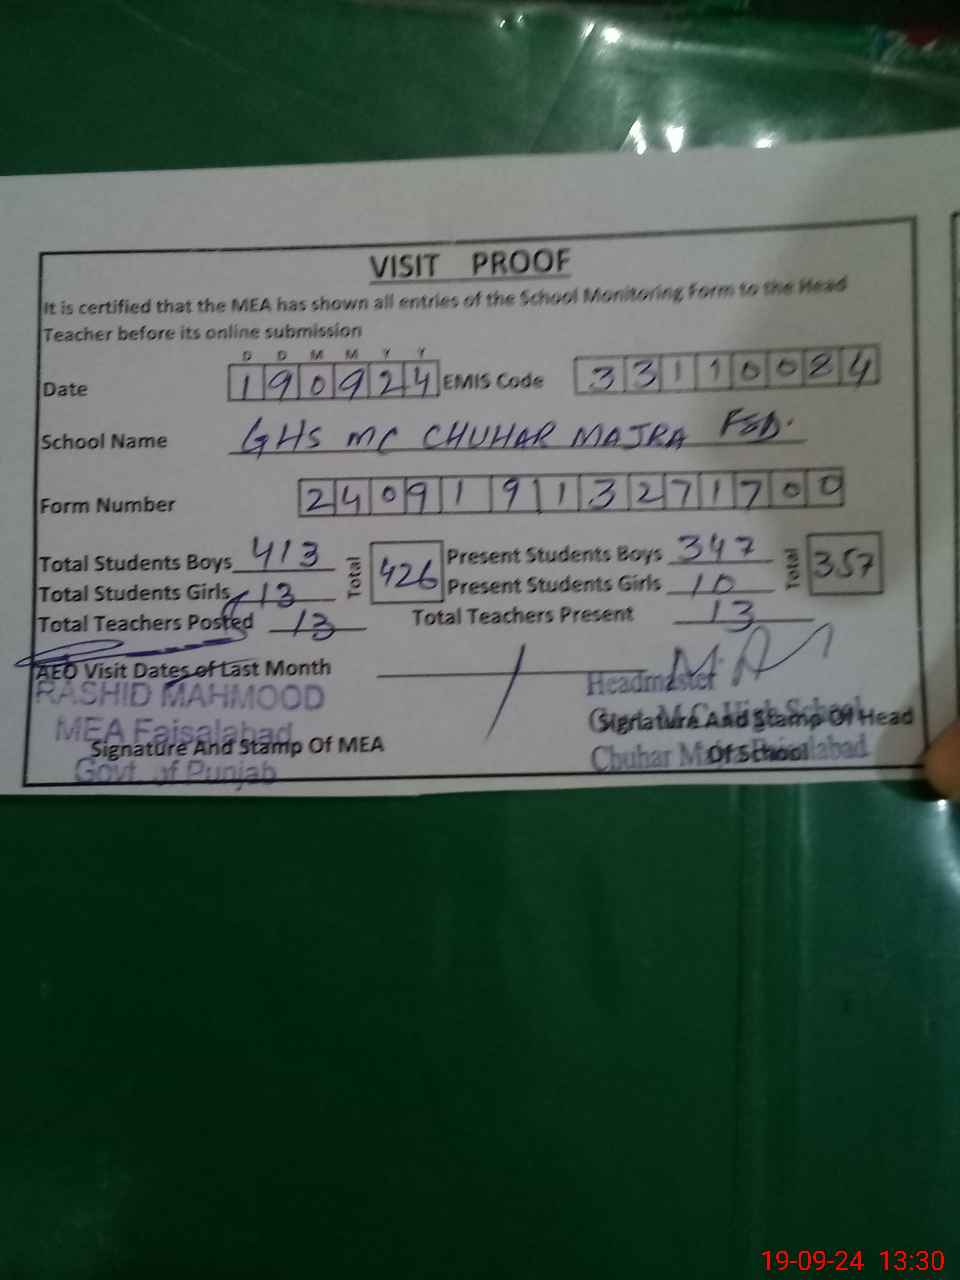 VISIT PROOF
It is certified that the MEA has shown all entries of the School Monitoring Form to the Head
Teacher before its online submission
D D M M Y Y
Date 190924 EMIS Code 33110084
School Name GHS MC CHUHAR MAJRA FSD.
Form Number 240919113271700
Total Students Boys 413 Total 426 Present Students Boys 347 Total 357
Total Students Girls 13 Present Students Girls 10
Total Teachers Posted 13 Total Teachers Present 13
AEO Visit Dates of Last Month
RASHID MAHMOOD
MEA Faisalabad
Signature And Stamp Of MEA
Govt. of Punjab
Headmaster
M.C. High School
Signature And Stamp Of Head
Of School
Chuhar
19-09-24 13:30